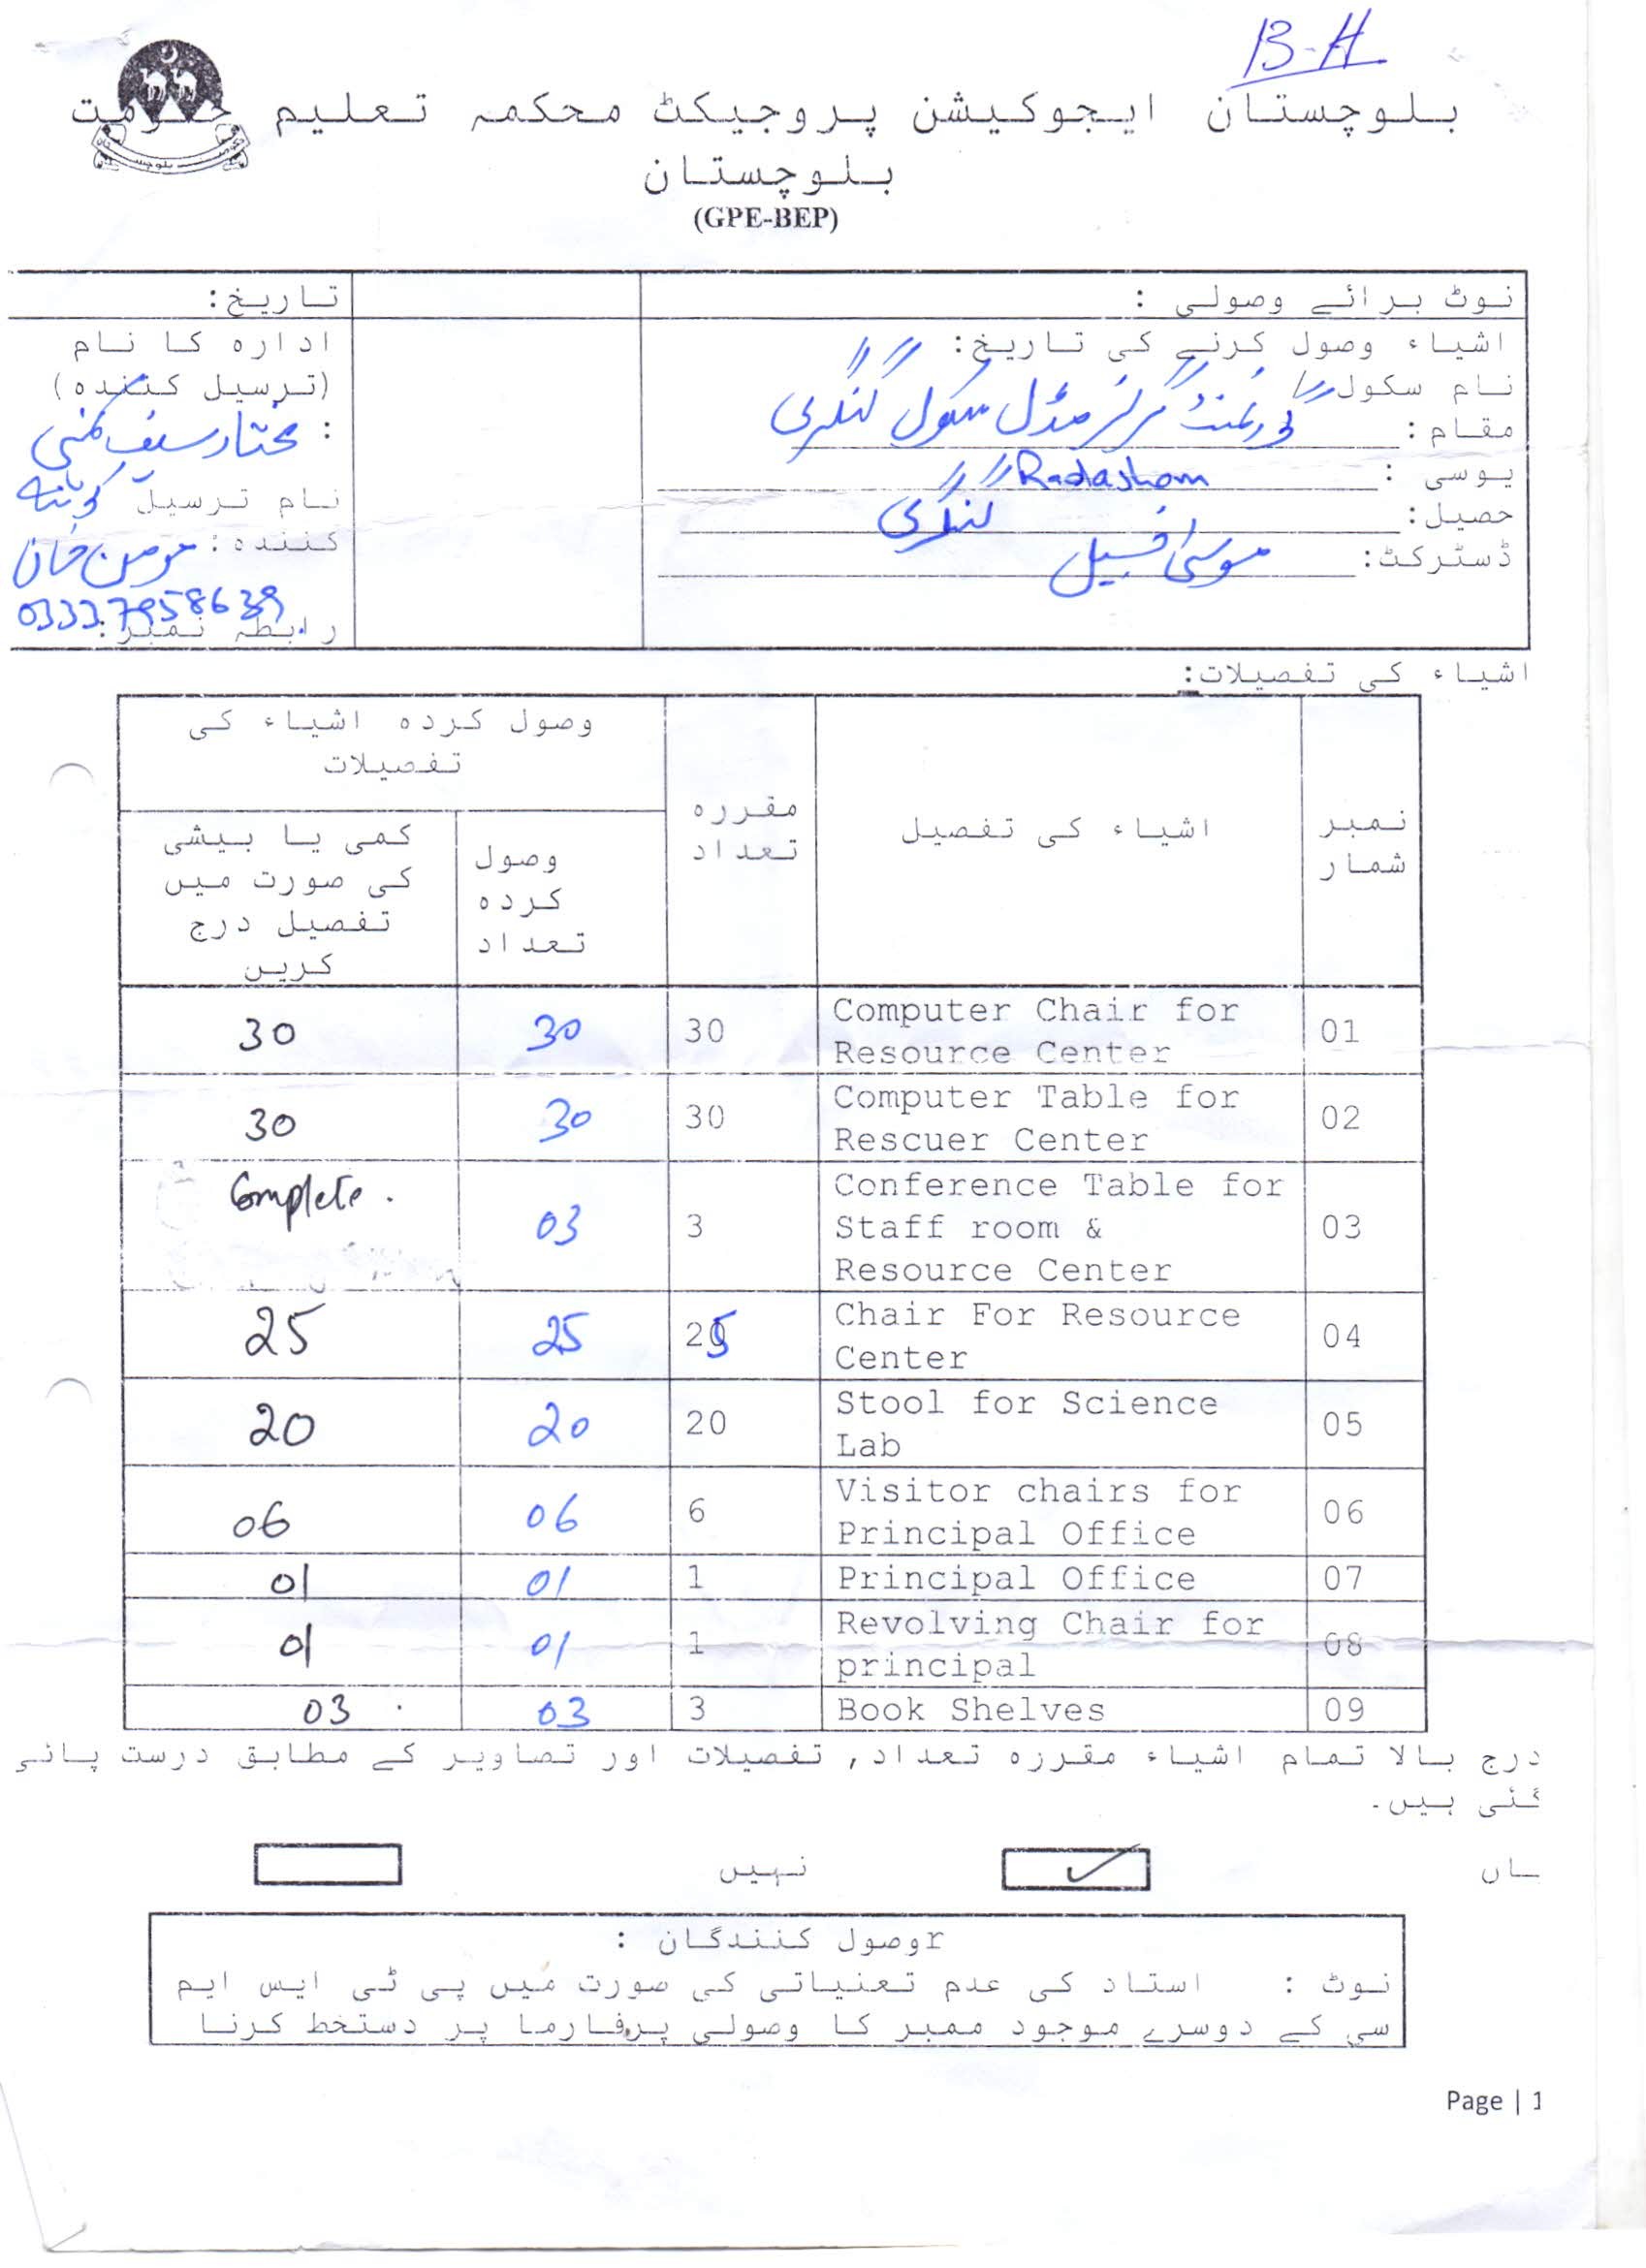 B-H
بلوچستان ایجوکیشن پروجیکٹ محکمہ تعلیم حکومت
بلوچستان
(GPE-BEP)
نوٹ برائے وصولی :
تاریخ:
اشیاء وصول کرنے کی تاریخ:
نام سکول
مقام : گورنمنٹ گرلز مڈل سکول کنگری
یوسی : Radasham
حصیل: کنگری
ڈسٹرکٹ: موسیٰ خیل
ادارہ کا نام
(ترسیل کنندہ)
: مختار سیف کمنی
نام ترسیل کوئٹہ
کنندہ: مومن خان
03337958639
رابطہ نمبر:
اشیاء کی تفصیلات:
نمبر شمار
اشیاء کی تفصیل
مقررہ تعداد
وصول کردہ اشیاء کی تفصیلات
وصول کردہ تعداد
کمی یا بیشی کی صورت میں تفصیل درج کریں
01 Computer Chair for Resource Center 30 30 30
02 Computer Table for Rescuer Center 30 30 30
03 Conference Table for Staff room & Resource Center 3 03 Complete.
04 Chair For Resource Center 25 25 25
05 Stool for Science Lab 20 20 20
06 Visitor chairs for Principal Office 6 06 06
07 Principal Office 1 01 01
08 Revolving Chair for principal 1 01 01
09 Book Shelves 3 03 03
درج بالا تمام اشیاء مقررہ تعداد, تفصیلات اور تصاویر کے مطابق درست پائی
گئی ہیں۔
ہاں ✓ نہیں
rوصول کنندگان :
نوٹ : استاد کی عدم تعنیاتی کی صورت میں پی ٹی ایس ایم
سی کے دوسرے موجود ممبر کا وصولی پرفارما پر دستخط کرنا
Page | 1